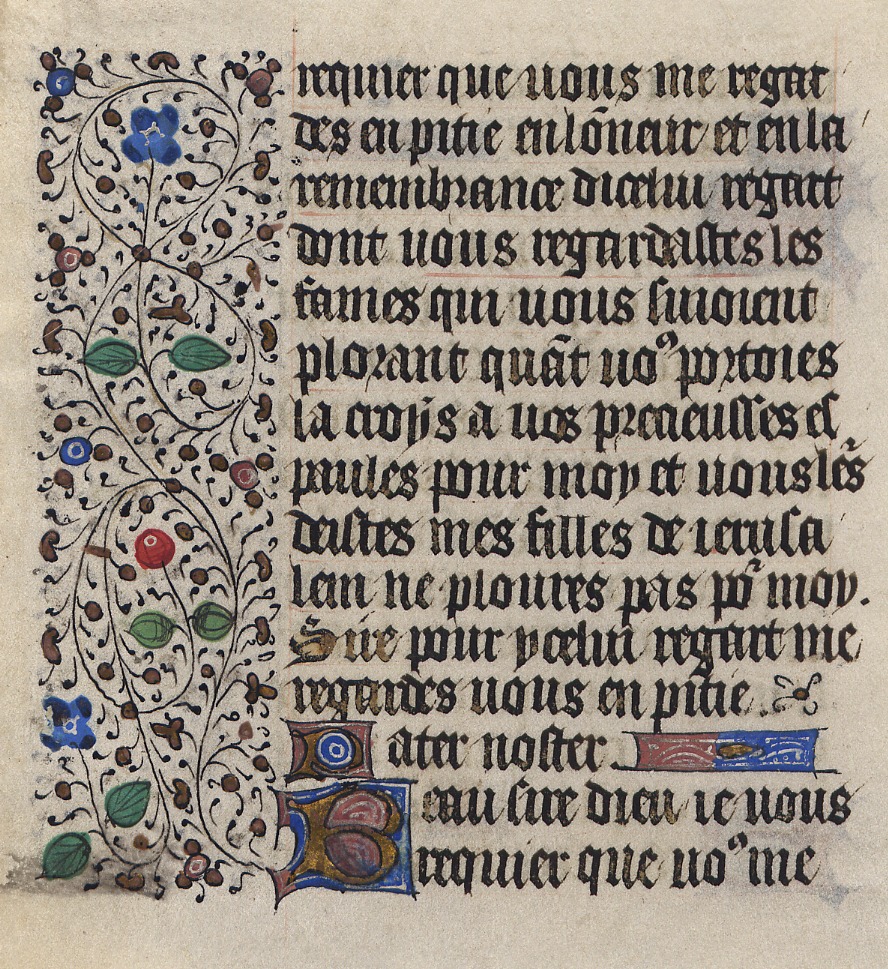 requier que uous me regar
des en pitie en lōneur et en la
remembrance dicelui regart
dont uous regardastes les
fames qui uous siuoient
plorant quāt uoꝰ portoies
la croys a uos precieusses es
paules pour moy et uous lēs
deistes mes filles de ierusa
lem ne ploures pas po᷑ moy.
Sire pour ycelui regart me
regardes uous en pitie.
Pater noster.
Beau sire dieu ie uous
requier que uoꝰ me